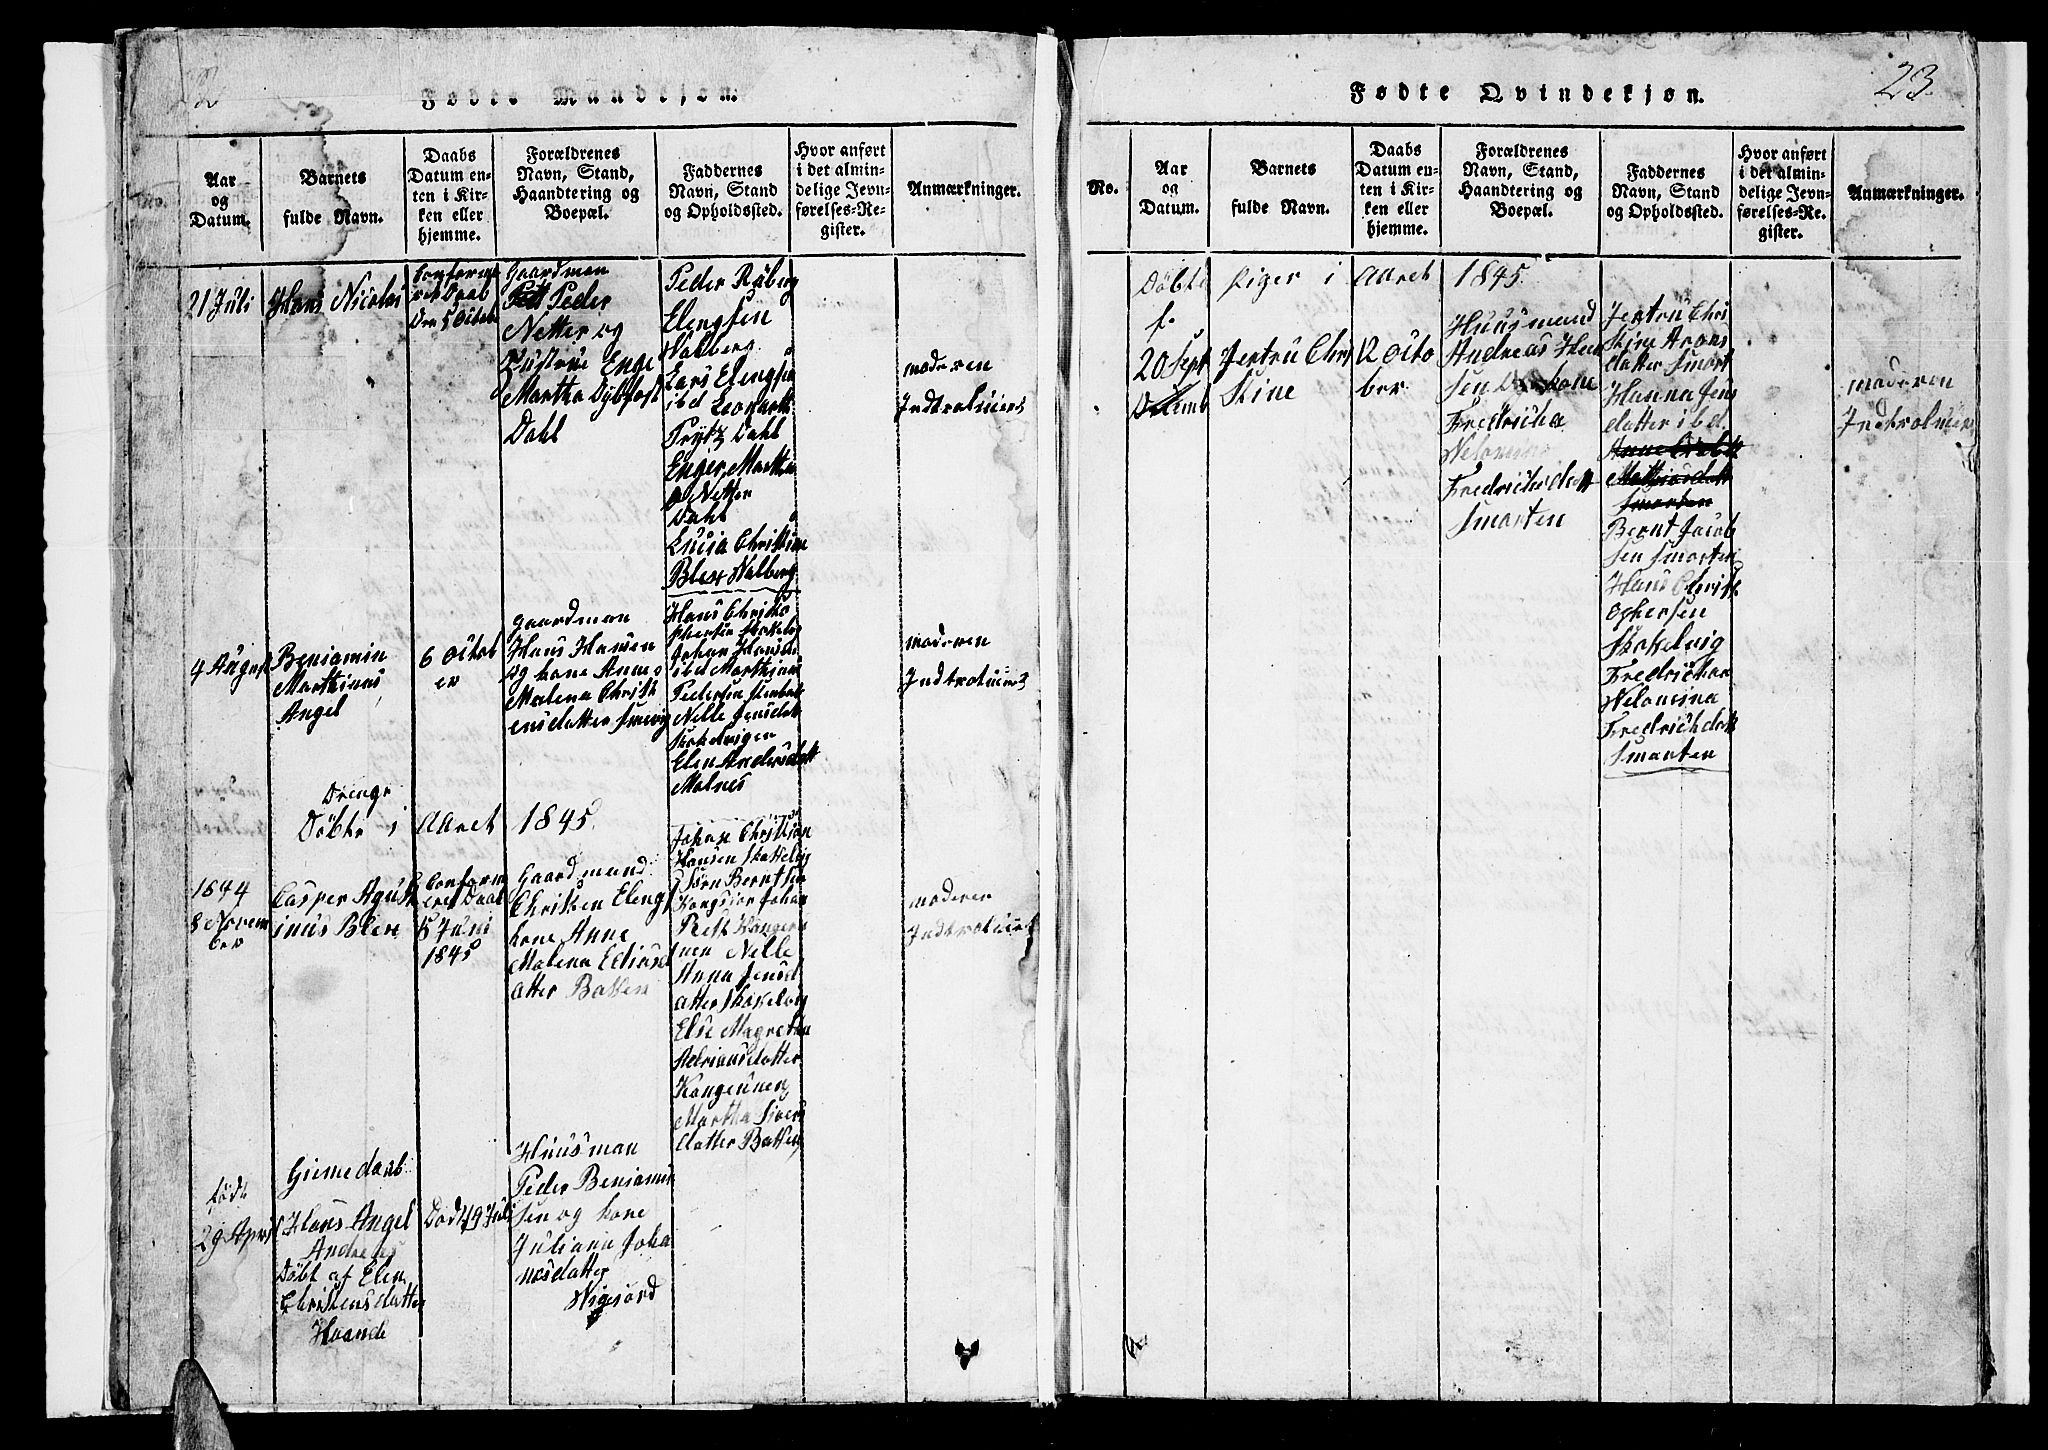 Fødte Mandkjøn.
No.
Aar
og
Datum.
Barnets
fulde Navn.
Daabs
Datum en-
ten i Kir-
ken eller
hjemme.
Forældrenes
Navn, Stand,
Haandtering og
Boepæl.
Faddernes
Navn, Stand
og Opholdssted.
Hvor anført
i det almin-
delige Jevn-
førelses-Re-
gister.
Anmærkninger.
21 Juli
Hans Nicolai
Conferme
ret Daab
Gaardman
Peder
Netter og
Hustrue Enge
Martha
Dahl
Peder Røberg
Elengsen
Valberg
Lars Elengsø
ibd Leonart
Prytz Dahl
Enger Martha
Netter
Dahl
Lucia Christine
Blex Valberg
moderen
Indtrolucert
4 August
Beniamin
Marthinus
Angel
6 Octob
er
gaardman
Hans Hansen
og kone Anne
Malena Christ
ensdatter
Hans Christo
phersen
Johan Hansen
ibd Marthinus
Pedersen
Nelle Jensdatt
Skokelvigen
Elen Andersdatt
Malnes
moderen
Indtrolucert
Drenge
Døbte i Aaret 1845
1844
8 Novem
ber
Casper Agust
inus Blix
Conferm
eret Daab
15 Juni
1845
Gaardmand
Christen Eleng
kone Anne
Malena Eliasd
atter Batten
Johan Christian
Hansen Skokelvig
Sørn Berntsen
Johan
Nelle
Anna Jensd
atter Skokelvig
Else Magretha
Adriansdatter
Kongeunen
Martha Sivers
datter Batten
moderen
Indtrolucert
født
29 April
Giemedaab
Hans Angel
Andreas
Døbt af Elen
Christensdatter
Haand
Død 19 Juli
Huusman
Peder Beniamin
sen og kone
Juliana Joha
nesdatter
Nigeiord
Fødte Qvindekjøn.
23.
No.
Aar
og
Datum.
Barnets
fulde Navn.
Daabs
Datum en-
ten i Kir-
ken eller
hjemme.
Forældrenes
Navn, Stand,
Haandtering og
Boepæl.
Faddernes
Navn, Stand
og Opholdssted.
Hvor anført
i det almin-
delige Jevn-
førelses-Re-
gister.
Anmærkninger.
Døbte Piger i Aaret 1845
f.
20 Sept
Jertru Chri
stine
12 octo
ber
Huusmand
Andreas Han
sen og kone
Fredricha
Nelomina
Fredrichsdatt
Smorten
Jertru Chri
stine Arons
datter Smort
Hanna Jens
datter ibd.
Anne
Mathiasdatt
Smorten
Bernt Jacob
sen Smorten
Hans Christ
ophersen
Skokelvig
Fredricha
Nelomina
Fredrichdatt
Smorten
moderen
Indtrolucer